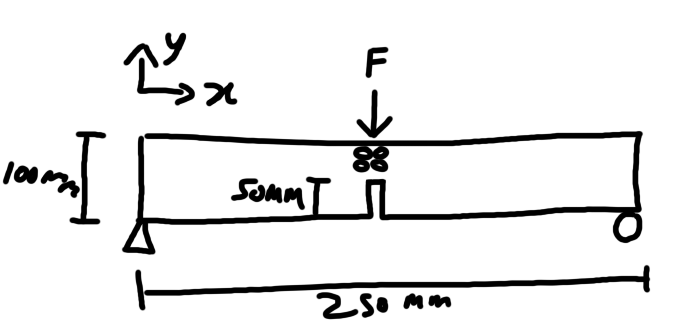 y
x
F
100mm
50mm
250 mm